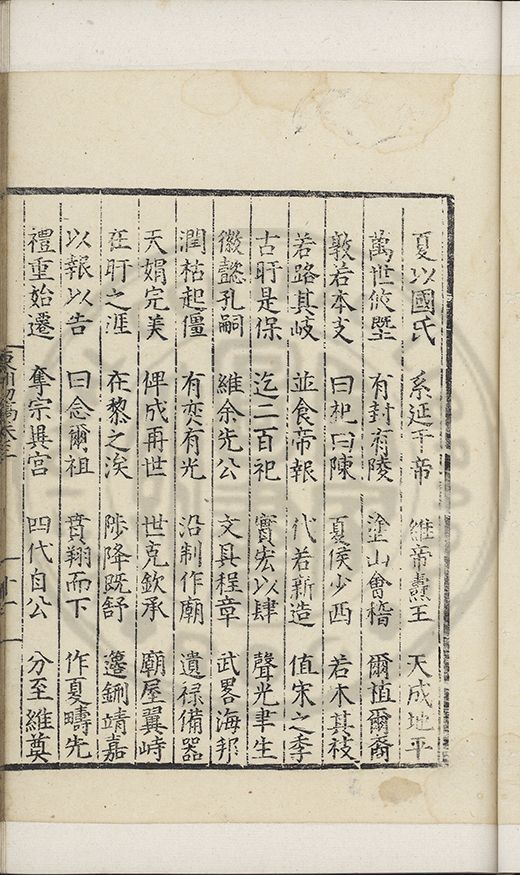 夏以國氏　系延于帝　維帝䊸王　天成地平
萬世攸曁　有封有陵　塗山會稽　爾植爾裔
敦若本支　曰杞曰陳　夏侯少西　若木其枝
若路其岐　並食帝報　代若新造　值宋之季
古盱是保　迄二百祀　實宏以肆　聲光聿生
徽懿孔嗣　維余先公　文具程章　武畧海邦
潤枯起僵　有奕有光　沿制作廟　遺祿備器
天娟完美　俾成再世　世克欽承　廟屋翼峙
在盱之涯　在黎之涘　陟降既舒　籩鉶靖嘉
以報以告　曰念爾祖　賁翔而下　作夏疇先
禮重始遷　奪宗異宮　四代自公　分至維奠